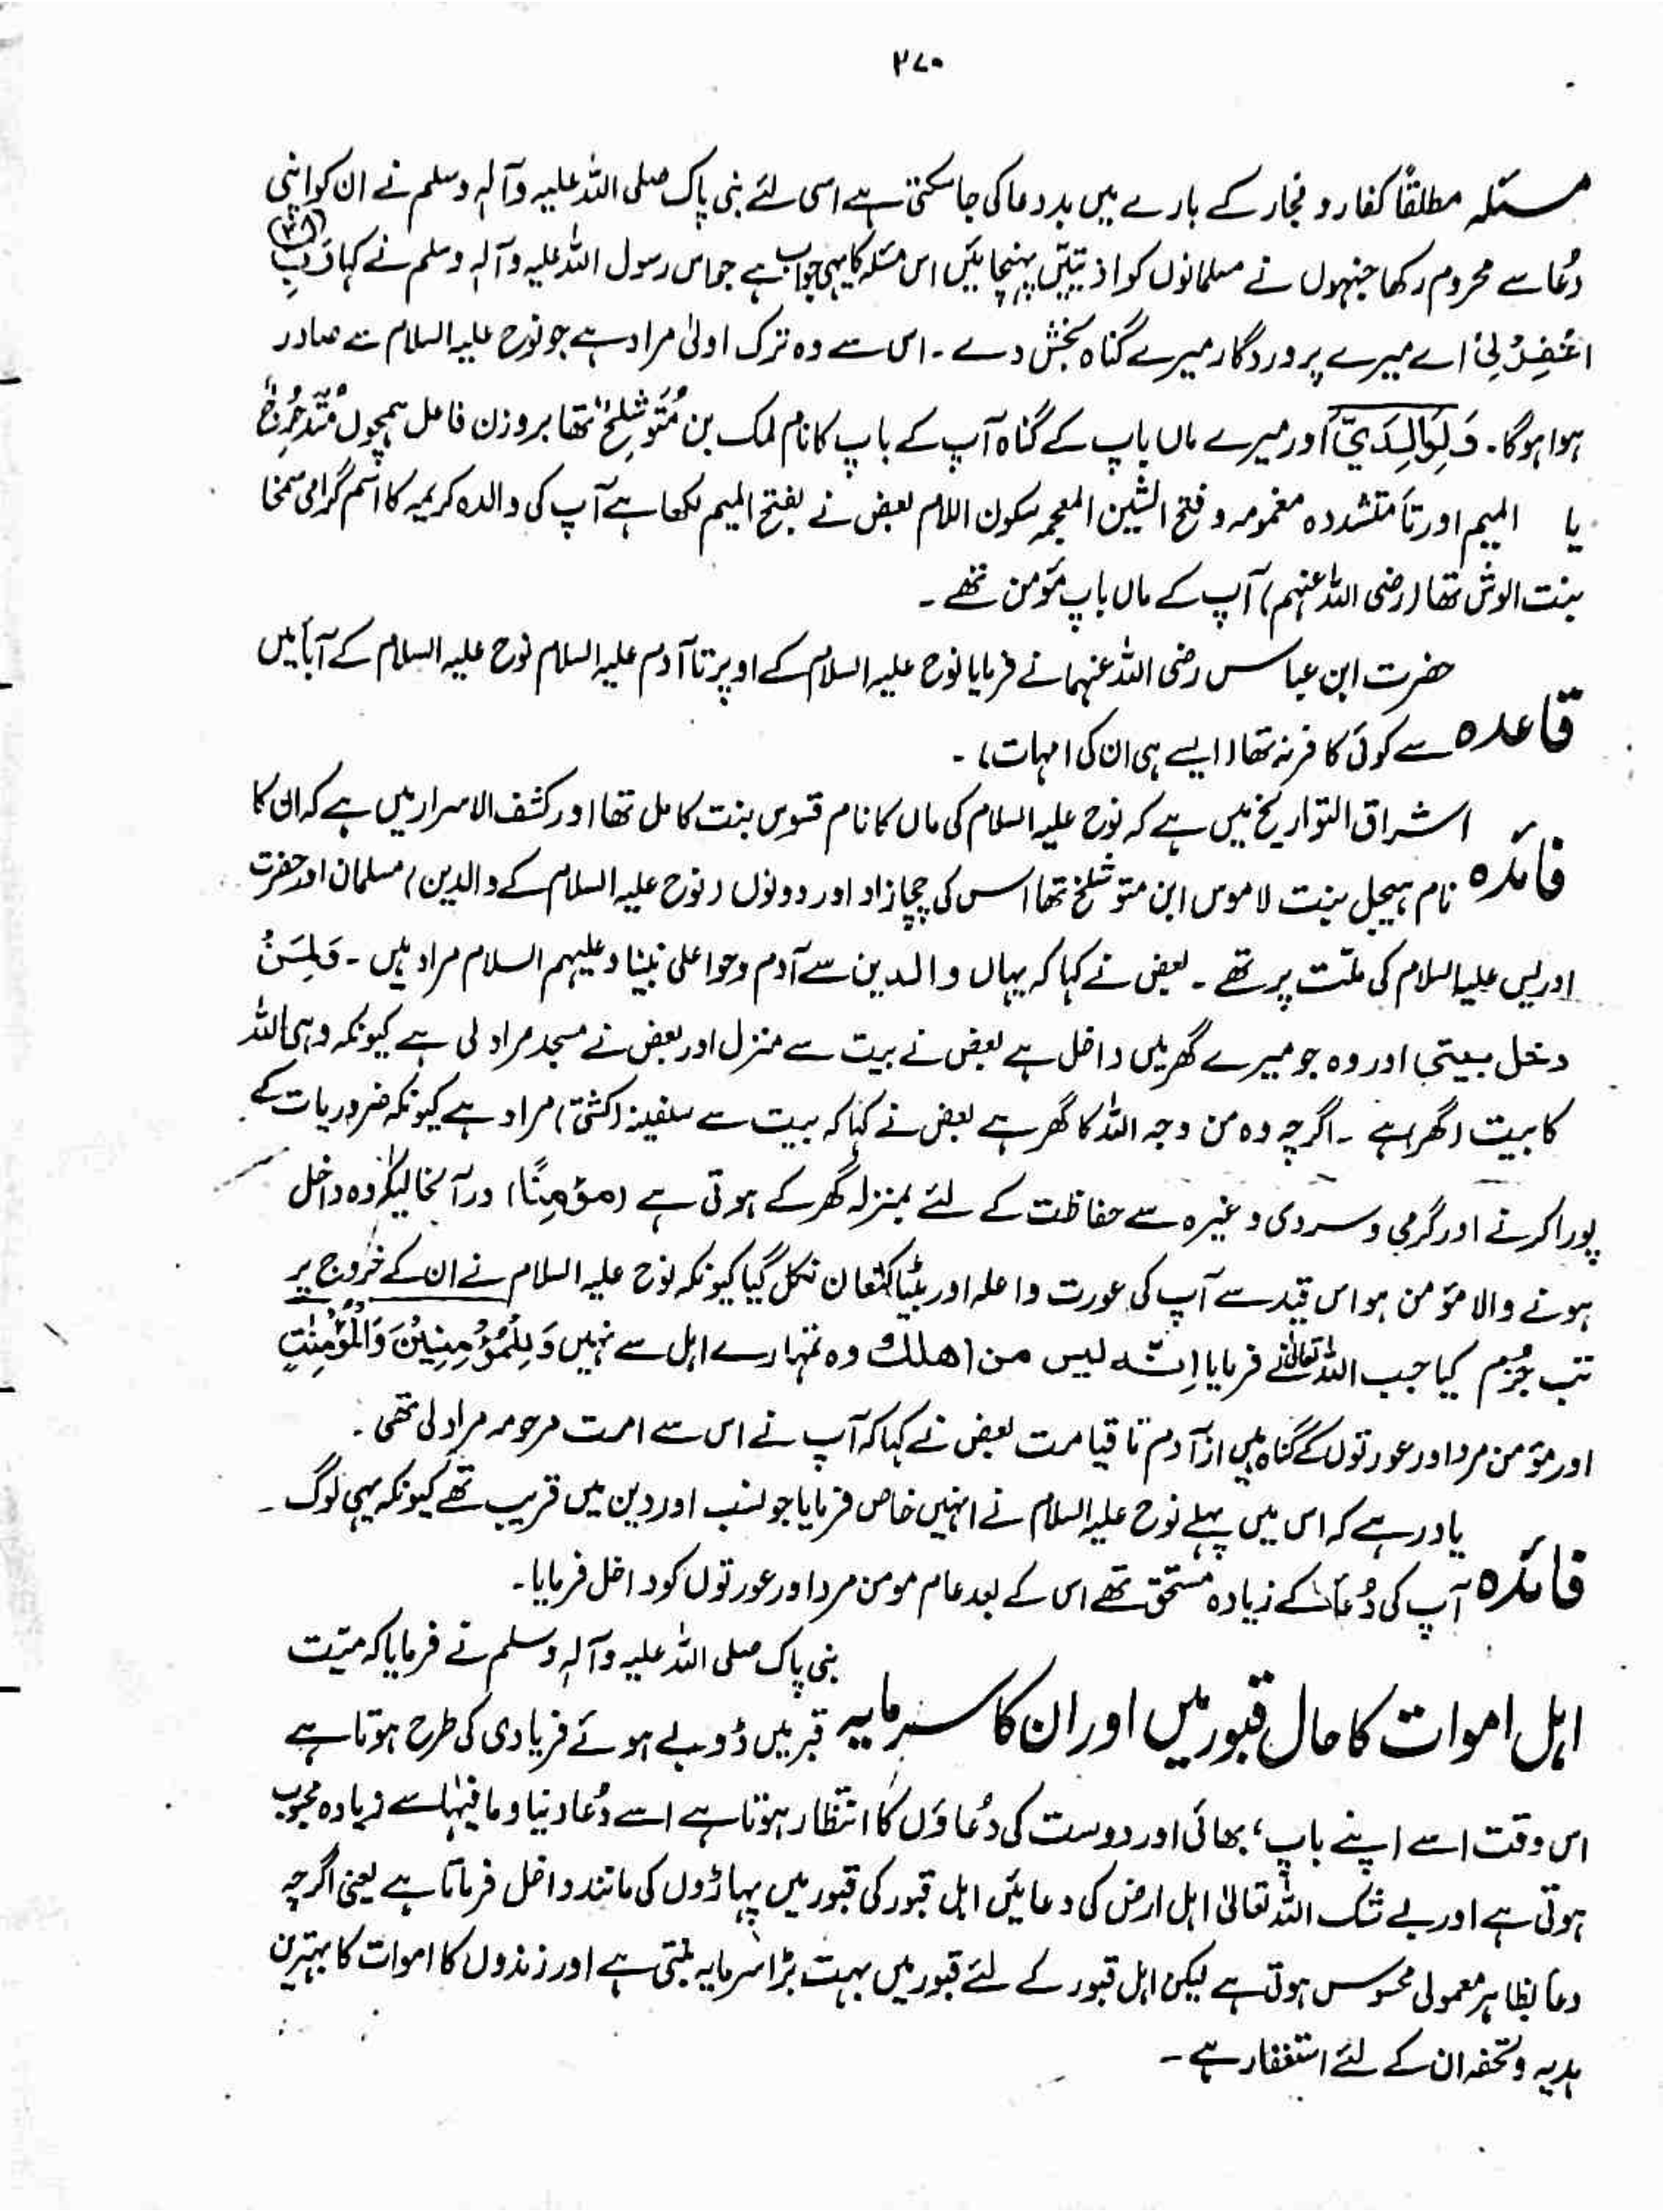 ۳۷۰
مسئلہ مطلقًا کفار و فجار کے بارے میں بددعا کی جاسکتی ہے اسی لئے نبی پاک صلی اللہ علیہ وآلہٖ وسلم نے ان کو اپنی
دُعا سے محروم رکھا جنہوں نے مسلمانوں کو اذیتیں پہنچائیں اس مسئلہ کا یہی جواب ہے جو اس رسول اللہ علیہ وآلہٖ وسلم نے کہا رَبِّ
اغْفِرْ لِیْ اے میرے پروردگار میرے گناہ بخش دے ۔ اس سے وہ ترک اولیٰ مراد ہے جو نوح علیہ السلام سے صادر
ہوا ہوگا ۔ وَلِوَالِدَیَّ اور میرے ماں باپ کے گناہ آپ کے باپ کا نام لمک بن مُتَّوشَلِخ تھا بروزن فاعل ہمچوں مُتَدَحْرِج
یا المیم اور تأ مشددہ مغمومہ و فتح الشین المعجمہ سکون اللام بعض نے بفتح المیم لکھا ہے آپ کی والدہ کریمہ کا اسم گرامی سمخا
بنت انوش تھا (رضی اللہ عنہم) آپ کے ماں باپ مؤمن تھے ۔
حضرت ابن عباس رضی اللہ عنہما نے فرمایا نوح علیہ السلام کے اوپر تا آدم علیہ السلام نوح علیہ السلام کے آبأ میں
قاعدہ سے کوئی کافر نہ تھا (ایسے ہی ان کی امہات) ۔
اشراق التواریخ میں ہے کہ نوح علیہ السلام کی ماں کا نام قسوس بنت کامل تھا اور کشف الاسرار میں ہے کہ ان کا
فائدہ نام ہیجل بنت لاموس ابن متوشلخ تھا اس کی چچازاد اور دونوں (نوح علیہ السلام کے والدین) مسلمان اور حضرت
ادریس علیہ السلام کی ملّت پر تھے ۔ بعض نے کہا کہ یہاں والدین سے آدم وحوا علی نبینا وعلیہم السلام مراد ہیں ۔ وَلِمَنْ
دخل بیتی اور وہ جو میرے گھر میں داخل ہے بعض نے بیت سے منزل اور بعض نے مسجد مراد لی ہے کیونکہ وہی اللہ
کا بیت (گھر) ہے ۔ اگرچہ وہ من وجہ اللہ کا گھر ہے بعض نے کہا کہ بیت سے سفینہ (کشتی) مراد ہے کیونکہ ضروریات کے
پورا کرنے اور گرمی و سردی وغیرہ سے حفاظت کے لئے بمنزلہ گھر کے ہوتی ہے (مؤمِنًا) درآنحالیکہ وہ داخل
ہونے والا مؤمن ہو اس قید سے آپ کی عورت واعلہ اور بیٹیا کنعان نکل گیا کیونکہ نوح علیہ السلام نے ان کے خروج پر
تب جَزم کیا جب اللہ تعالیٰ نے فرمایا اِنّہ لیس من اھلک وہ تمہارے اہل سے نہیں وَلِلْمُؤْمِنِیْنَ وَالْمُؤْمِنٰتِ
اور مؤمن مرد اور عورتوں کے گناہ میں از آدم تا قیامت بعض نے کہا کہ آپ نے اس سے امت مرحومہ مراد لی تھی ۔
یاد رہے کہ اس میں پہلے نوح علیہ السلام نے انہیں خاص فرمایا جو نسب اور دین میں قریب تھے کیونکہ یہی لوگ ۔
فائدہ آپ کی دُعأ کے زیادہ مستحق تھے اس کے بعد عام مومن مرد اور عورتوں کو داخل فرمایا ۔
نبی پاک صلی اللہ علیہ وآلہٖ وسلم نے فرمایا کہ میّت
اہل اموات کا حال قبور میں اور ان کا سرمایہ قبر میں ڈوبے ہوئے فریادی کی طرح ہوتا ہے
اس وقت اسے اپنے باپ، بھائی اور دوست کی دُعاؤں کا انتظار ہوتا ہے اسے دُعا دنیا ومافیہا سے زیادہ محبوب
ہوتی ہے اور بے شک اللہ تعالیٰ اہل ارض کی دعائیں اہل قبور کی قبور میں پہاڑوں کی مانند داخل فرماتا ہے یعنی اگرچہ
دعأ بظاہر معمولی محسوس ہوتی ہے لیکن اہل قبور کے لئے قبور میں بہت بڑا سرمایہ بنتی ہے اور زندوں کا اموات کا بہترین
ہدیہ و تحفہ ان کے لئے استغفار ہے ۔